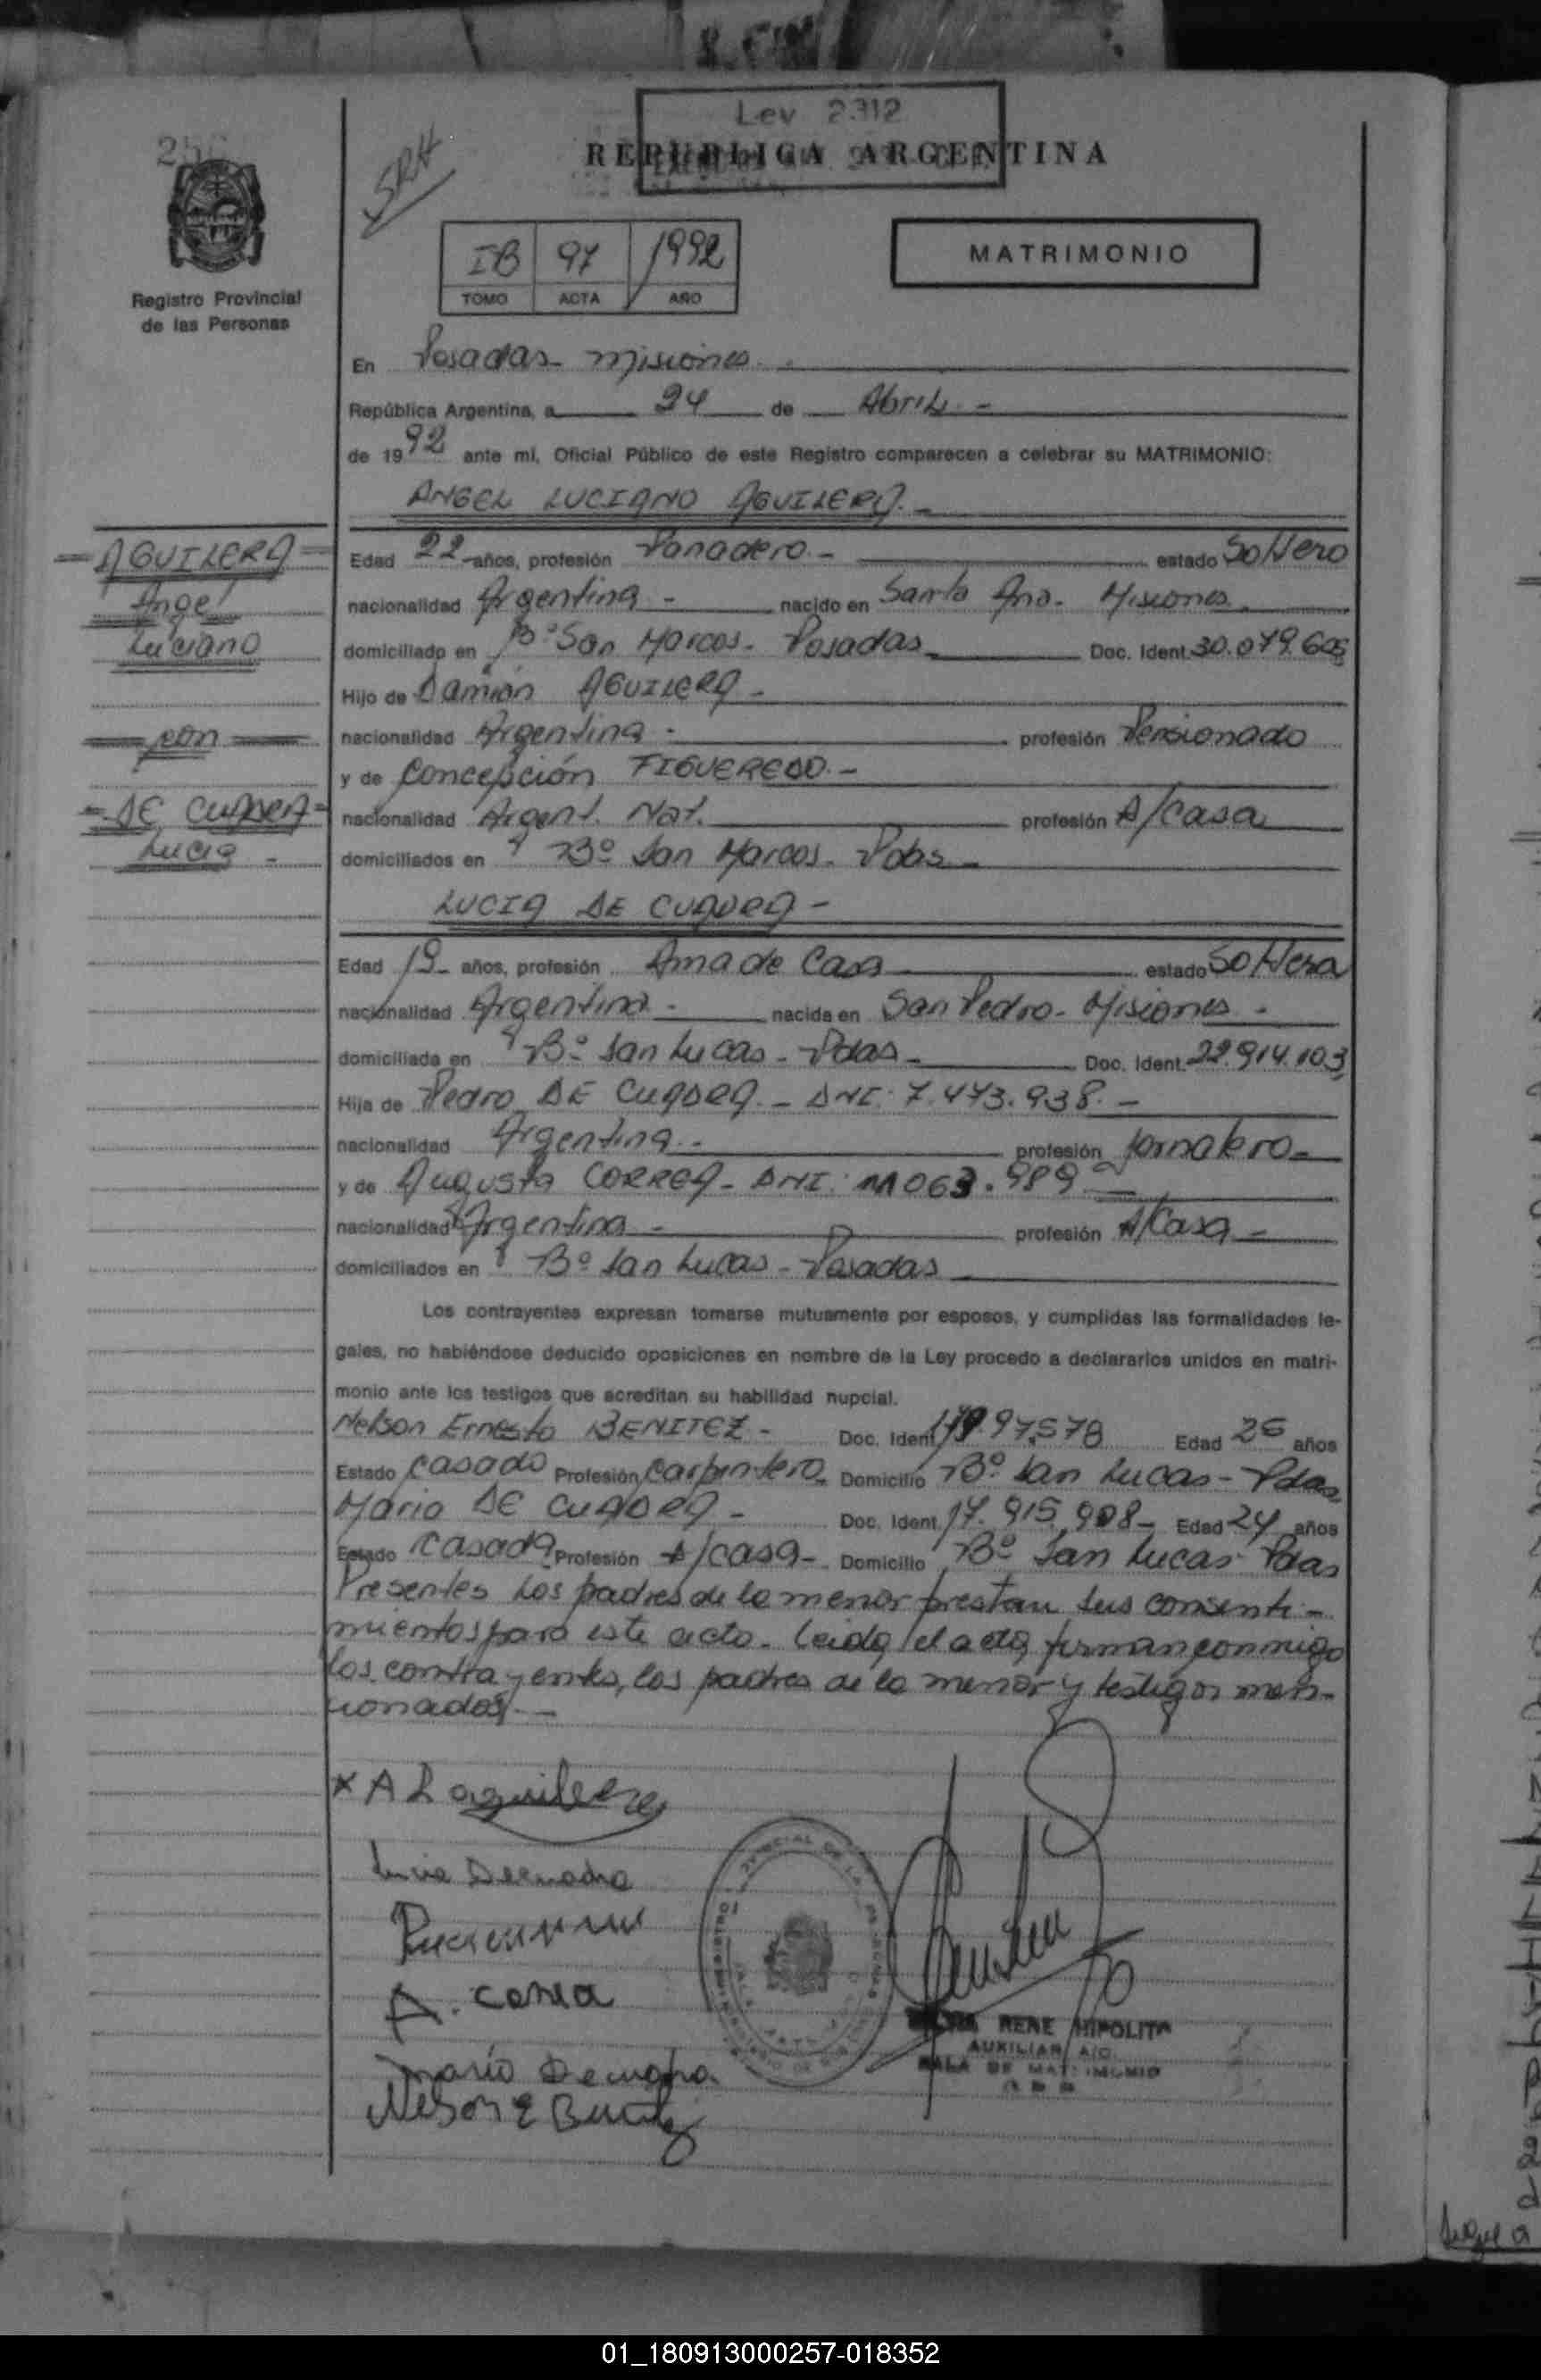 Ley 2312
REPUBLICA ARGENTINA
SRH
IB 97 1992
TOMO ACTA AÑO
MATRIMONIO
Registro Provincial
de las Personas
En Posadas - Misiones.
República Argentina, a 24 de Abril. -
de 1992 ante mi, Oficial Público de este Registro comparecen a celebrar su MATRIMONIO:
ANGEL LUCIANO AGUILERA. -
= AGUILERA =
Angel
Luciano
= con =
- DE CUADRA -
Lucia -
Edad 22 - años, profesión Panadero. - estado Soltero
nacionalidad Argentina - nacido en Santa Ana - Misiones.
domiciliado en Bº San Marcos - Posadas - Doc. Ident. 30.079.605
Hijo de Damián AGUILERA -
nacionalidad Argentina - profesión Pensionado
y de Concepción FIGUEREDO. -
nacionalidad Argent. Nat. profesión A/casa
domiciliados en Bº San Marcos - Pdas -
LUCIA DE CUADRA -
Edad 19 - años, profesión Ama de Casa estado Soltera
nacionalidad Argentina - nacida en San Pedro - Misiones -
domiciliada en Bº San Lucas - Pdas - Doc. Ident. 22.914.103
Hija de Pedro DE CUADRA. - DNI: 7.473.938. -
nacionalidad Argentina. - profesión Jornalero -
y de Augusta CORREA - DNI: 11063.989 -
nacionalidad Argentina - profesión A/Casa -
domiciliados en Bº San Lucas - Posadas
Los contrayentes expresan tomarse mutuamente por esposos, y cumplidas las formalidades le-
gales, no habiéndose deducido oposiciones en nombre de la Ley procedo a declararlos unidos en matri-
monio ante los testigos que acreditan su habilidad nupcial.
Nelson Ernesto BENITEZ - Doc. Ident. Edad 26 años
Estado Casado Profesión Carpintero Domicilio Bº San Lucas - Pdas
Maria DE CUADRA - Doc. Ident. 17.915.908 - Edad 24 años
Estado Casada Profesión A/casa - Domicilio Bº San Lucas Pdas
Presentes los padres de la menor prestan sus consenti-
mientos para este acto. Leída el acta, firman conmigo
los contrayentes, los padres de la menor y testigos men-
cionados. -
x A L aguilera
Lucia Decuadra
A. Correa
Maria Decuadra
Nelson E Benitez
RENE HIPOLITA
AUXILIAR A/C
SALA DE MATRIMONIO
Sigue a
01_180913000257-018352